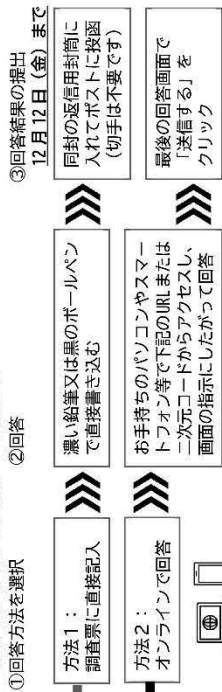 ①回答方法を選択
方法1：
調査票に直接記入
方法2：
オンラインで回答
②回答
濃い鉛筆又は黒のボールペン
で直接書き込む
お手持ちのパソコンやスマー
トフォン等で下記のURLまたは
二次元コードからアクセスし、
画面の指示にしたがって回答
③回答結果の提出
12月12日（金）まで
同封の返信用封筒に
入れてポストに投函
（切手は不要です）
最後の回答画面で
「送信する」を
クリック